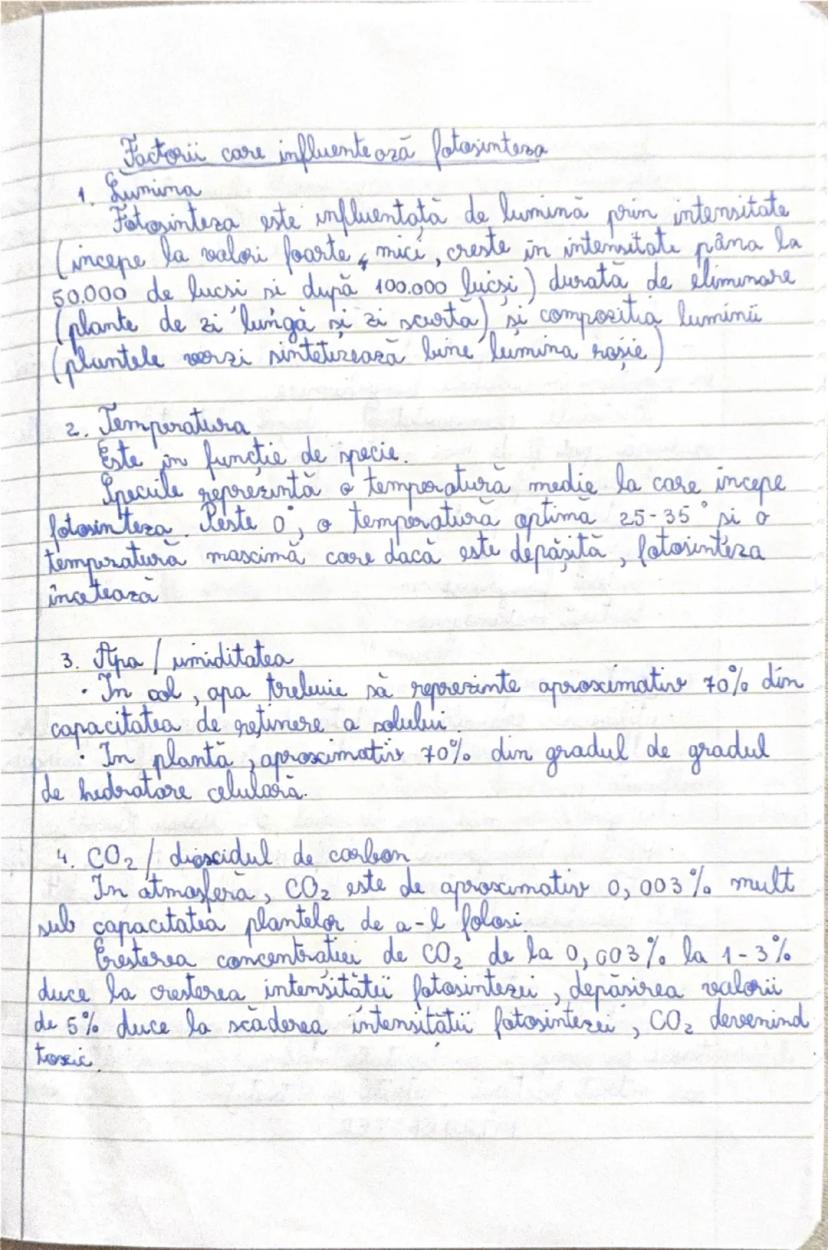 Factorii care influentează fotosinteza
1. Lumina
Fotosinteza este influentată de lumină prin intensitate
(incepe la valori foarte mici, creste în intensitate până la
50.000 de lucsi si după 100.000 lucsi) durată de eliminare
(plante de zi lungă si zi scurtă) si compozitia luminii
(plantele verzi sintetizează bine lumina roșie)
2. Temperatura
Este în funcție de specie.
Speciile reprezintă o temperatură medie la care începe
fotosinteza. Peste 0°, o temperatură optimă 25-35° si o
temperatură maximă care dacă este depășită, fotosinteza
încetează
3. Apa / umiditatea
· In sol, apa trebuie să reprezinte aproximativ 70% din
capacitatea de reținere a solului.
· In plantă, aproximativ 70% din gradul de gradul
de hidratare celulară.
4. CO2 / dioxidul de carbon
In atmosferă, CO2 este de aproximativ 0,003% mult
sub capacitatea plantelor de a-l folosi.
Cresterea concentratiei de CO2 de la 0,003% la 1-3%
duce la cresterea intensității fotosintezei, depăsirea valorii
de 5% duce la scăderea intensitatii fotosintezei, CO2 devenind
toxic.